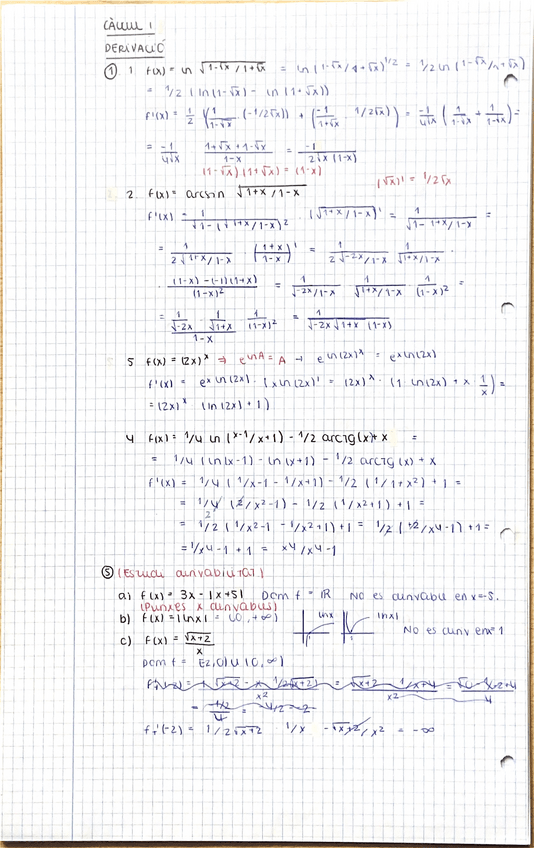 CÀLCUL 1
DERIVACIÓ
① 1 f(x) = ln √(1-√x / 1+√x) = ln (1-√x/1+√x)^1/2 = 1/2 ln (1-√x/1+√x)
= 1/2 (ln(1-√x) - ln(1+√x))
f'(x) = 1/2 (1/(1-√x) · (-1/2√x)) + (-1/(1+√x) · 1/2√x)) = -1/4√x (1/(1-√x) + 1/(1-√x)) =
= -1/4√x (1+√x+1-√x)/(1-x) = -1/(2√x (1-x))
(1-√x)(1+√x) = (1-x)
2. f(x) = arcsin √(1+x / 1-x) (√x)' = 1/2√x
f'(x) = 1/√(1-(√(1+x/1-x))²) · (√(1+x/1-x))' = 1/√(1-1+x/1-x) =
= 1/(2√(1+x/1-x)) ((1+x)/(1-x))' = 1/(2√(-2x/1-x)) 1/√(1+x/1-x) ·
· ((1-x)-(-1)(1+x))/(1-x)² = 1/√(-2x/1-x) 1/√(1+x/1-x) · 1/(1-x)² =
= 1/√-2x · 1/√(1+x) / 1-x · 1/(1-x)² = 1/(√-2x √(1+x) (1-x))
5 f(x) = (2x)^x ⇒ e^lnA = A → e^ln(2x)^x = e^x ln(2x)
f'(x) = e^x ln(2x) · (x ln(2x))' = (2x)^x · (1 · ln(2x) + x · 1/x) =
= (2x)^x (ln(2x) + 1)
4 f(x) = 1/4 ln (x-1/x+1) - 1/2 arctg(x) + x =
= 1/4 (ln(x-1) - ln(x+1) - 1/2 arctg(x) + x
f'(x) = 1/4 (1/x-1 - 1/x+1) - 1/2 (1/1+x²) + 1 =
= 1/4 (2/x²-1) - 1/2 (1/x²+1) + 1 =
2
= 1/2 (1/x²-1 - 1/x²+1) + 1 = 1/2 (+2/x⁴-1) + 1 =
= 1/x⁴-1 + 1 = x⁴/x⁴-1
⑤ (Estudi derivabilitat)
a) f(x) = 3x - |x+5| Dom f = ℝ No es derivable en x=-5.
(Punxes x derivables)
b) f(x) = |ln x| = (0, +∞) lnx |lnx| No es deriv en x=1
c) f(x) = √(x+2)/x
Dom f = [-2,0) ∪ (0,∞)
f+'(-2) = 1/2√(x+2) 1/x - √(x+2)/x² = -∞